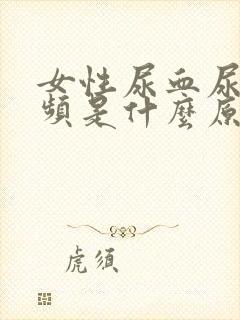 女性尿血尿
頻是什麼原
虎須